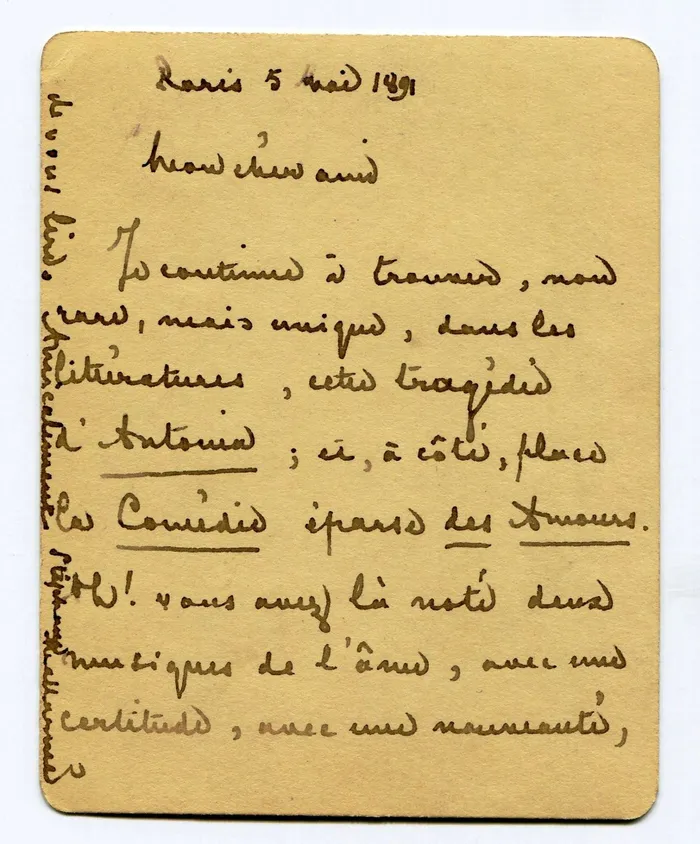 Paris 5 mai 1891
Mon cher ami
Je continue à trouver, non
rare, mais unique, dans les
littératures, cette tragédie
d'Antonia ; et, à côté, place
la Comédie éparse des Amours.
Oh! vous avez là noté deux
musiques de l'âme, avec une
certitude, avec une nouveauté,
de vous lire. Amicalement Stéphane Mallarmé